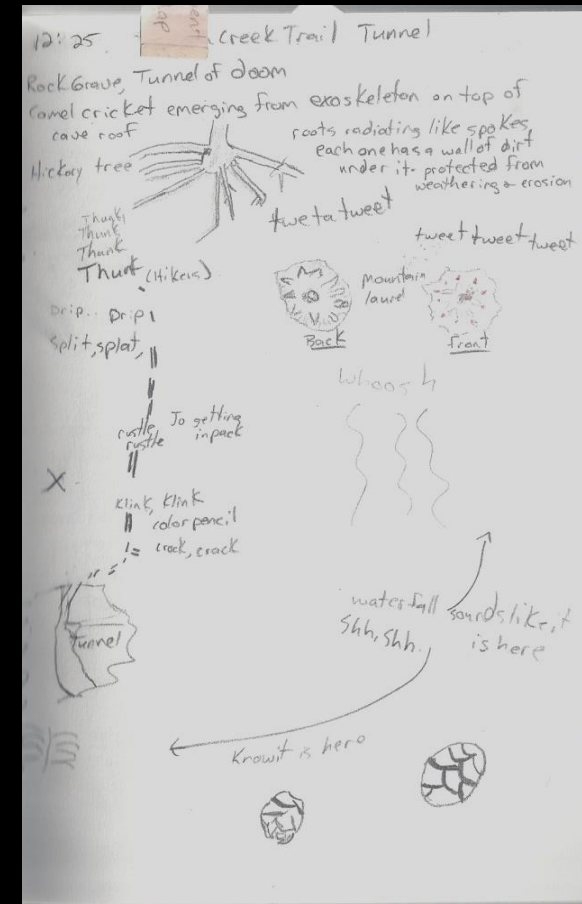 12:25
Creek Trail Tunnel
Rock Grave, Tunnel of doom
Camel cricket emerging from exoskeleton on top of
cave roof
roots radiating like spokes,
each one has a wall of dirt
under it - protected from
weathering & erosion
Hickory tree
tweta tweet
tweet tweet tweet
Thunk,
Thunk
Thunk
Thunk (Hikers)
mountain
laurel
Back
Front
Drip.. Drip
Split, splat,
Whoosh
rustle,
rustle
Jo getting
in pack
X
Klink, Klink
color pencil
crack, crack
Tunnel
waterfall
shh, shh.
sounds like it
is here
Know it is here